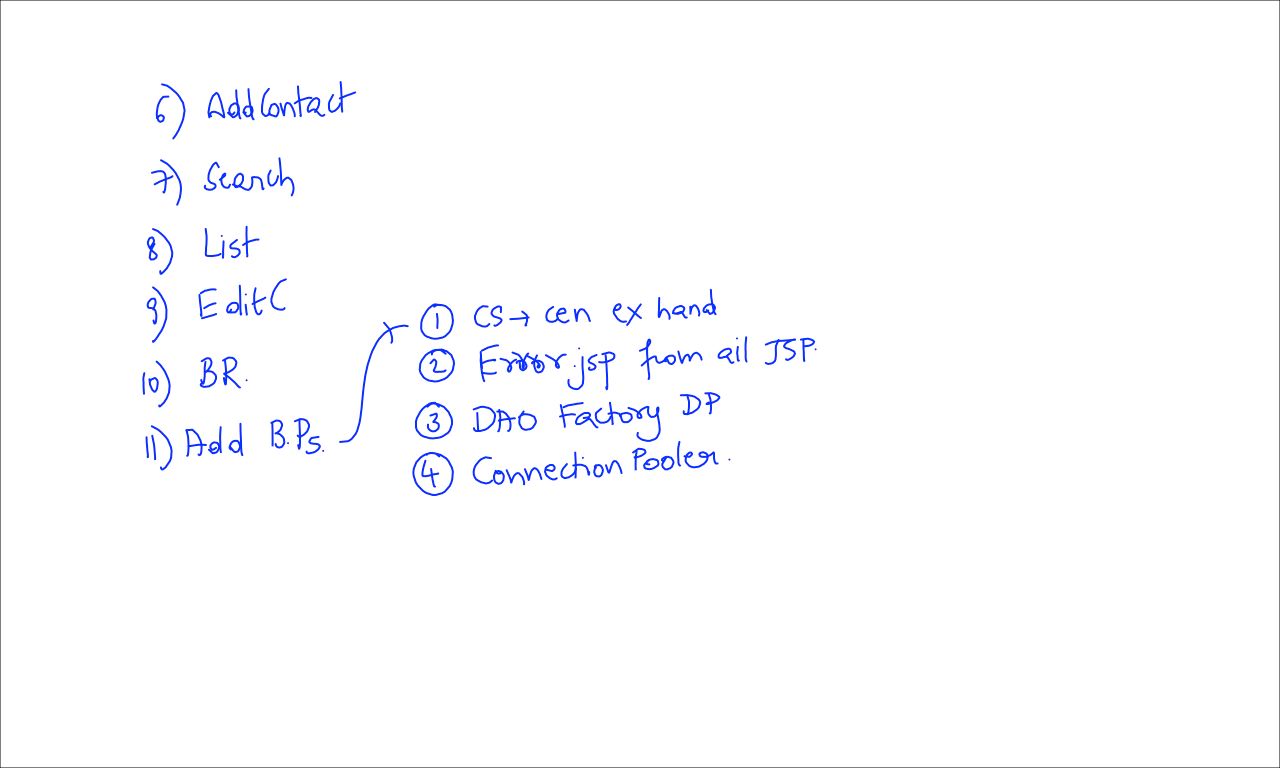 6) AddContact
7) Search
8) List
9) EditC
10) BR.
11) Add B.Ps.
① CS → cen ex hand
② Error.jsp from all JSP.
③ DAO Factory DP
④ Connection Pooler.